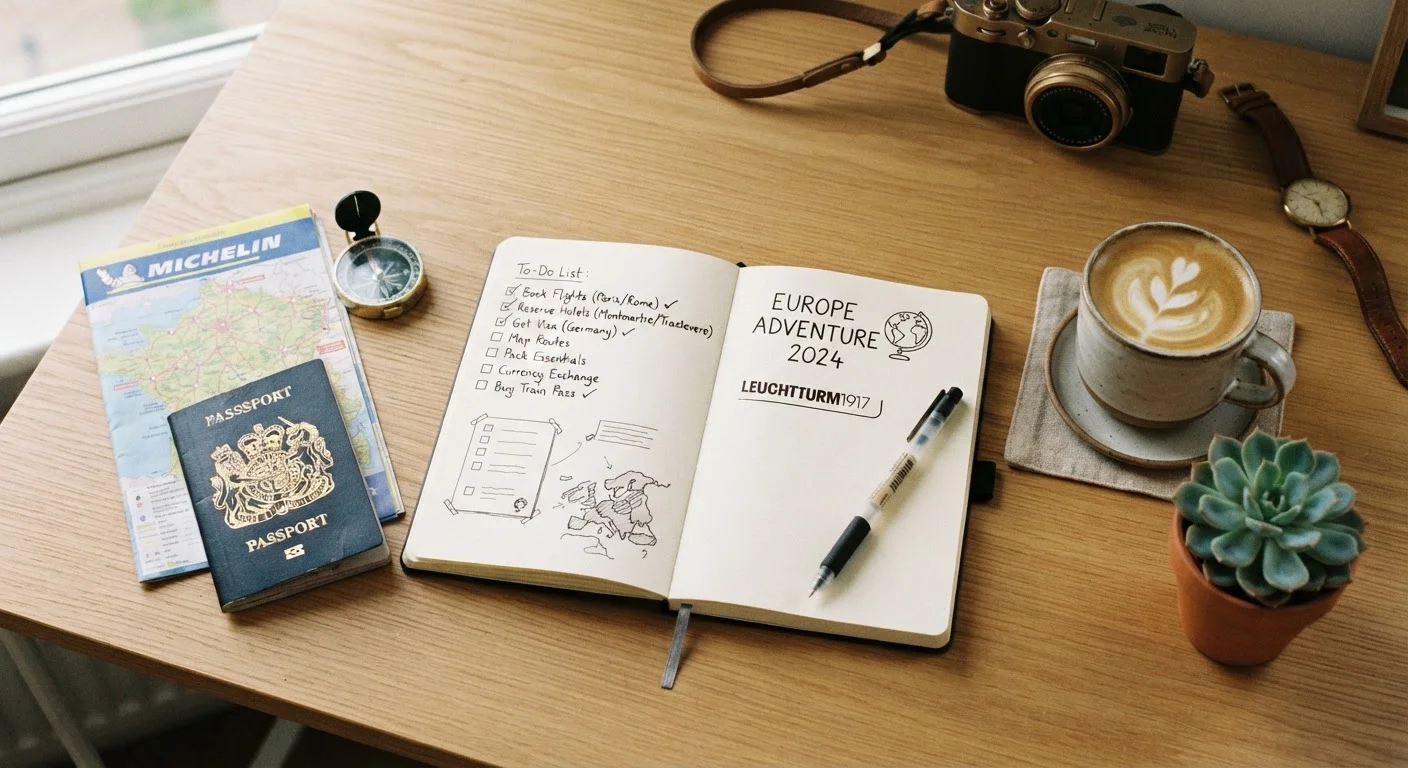 MICHELIN
PASSSPORT
PASSPORT
To-Do List:
☑ Book Flights (Paris/Rome) ✓
☑ Reserve Hotels (Montmartre/Trastevere)
☑ Get Visa (Germany) ✓
☐ Map Routes
☐ Pack Essentials
☐ Currency Exchange
☐ Buy Train Pass ✓
EUROPE
ADVENTURE
2024
LEUCHTTURM1917